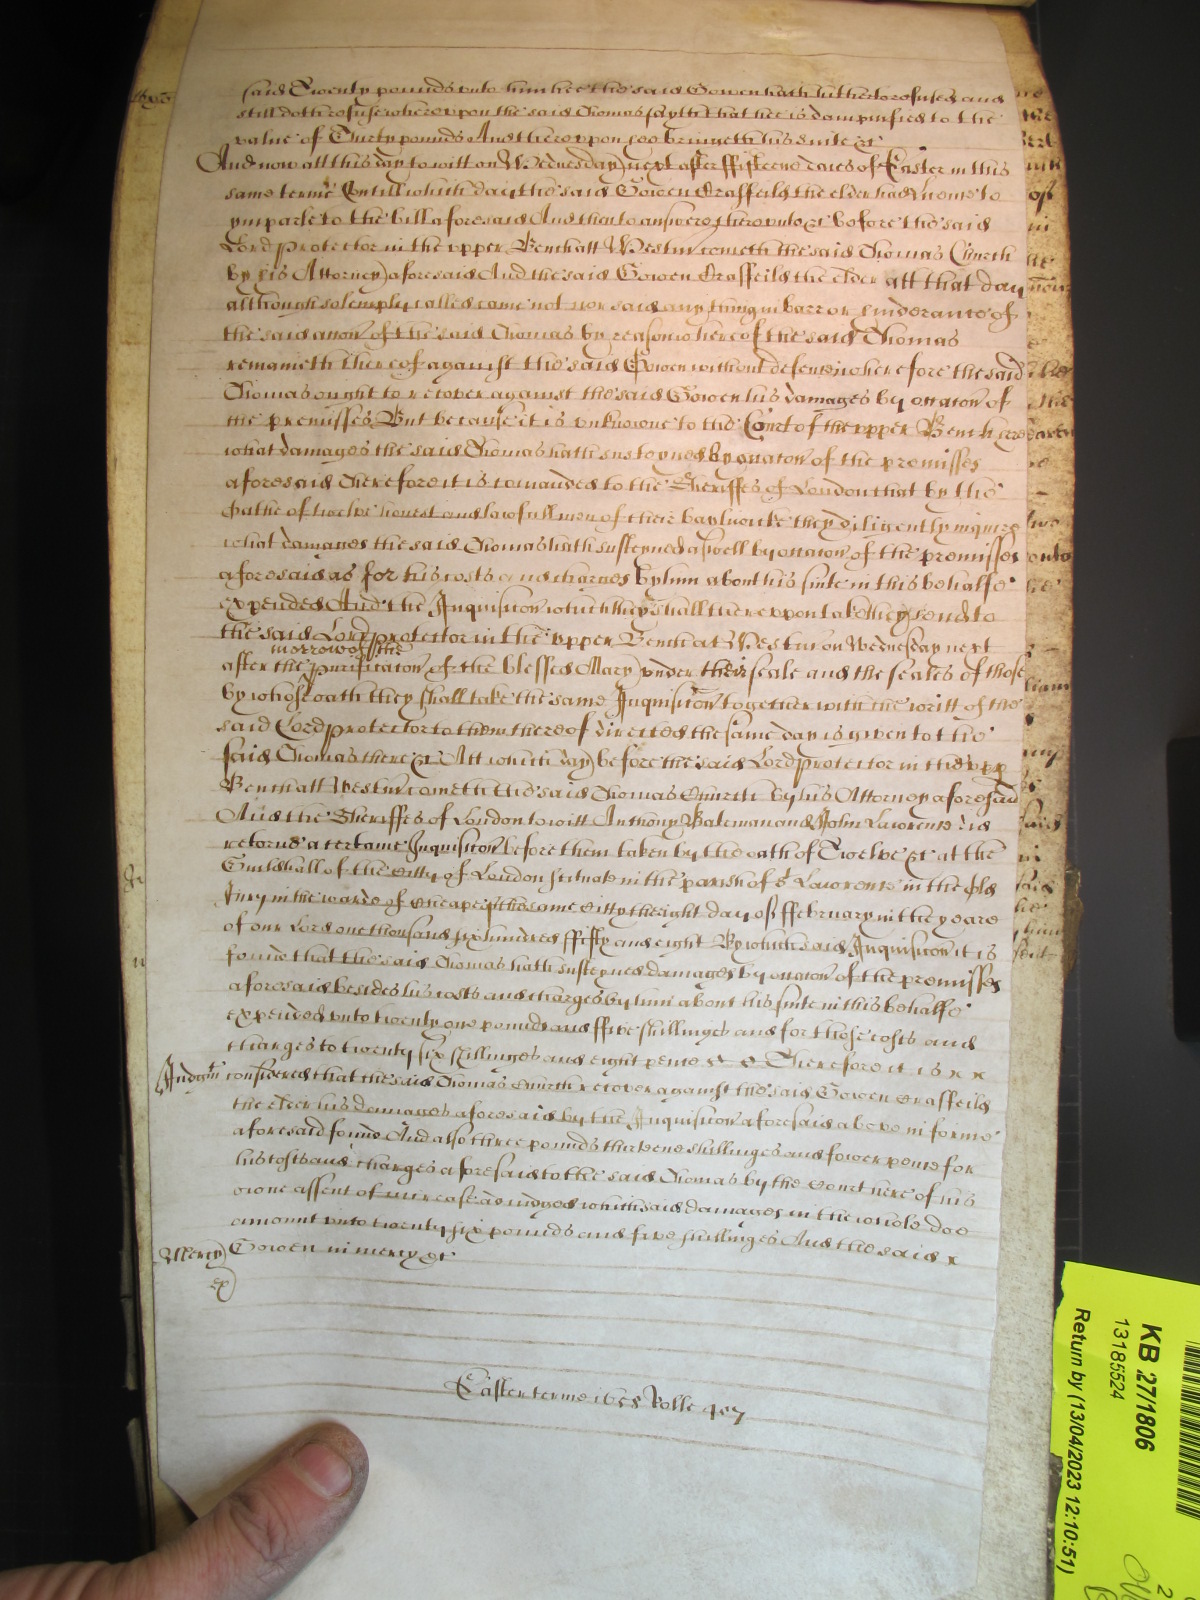 said Twenty pounds unto him hee the said Gowen hath hitherto refused and
still doth refuse whereupon the said Thomas sayth that hee is dampnified to the
value of Thirty pounds And thereuppon hee bringeth his suite &c
And now att this day to witt on Wednesday next after fifteene daies of Easter in this
same terme Untill which day the said Gowen Grasfeild the elder had leave to
ymparle to the bill aforesaid And then to answere thereunto &c before the said
Lord Protector in the upper Bench att Westm cometh the said Thomas Church
by his Attorney aforesaid And the said Gowen Grasfeild the elder att that day
although solemply called came not nor said any thing in barr or hinderance of
the said accon of the said Thomas by reason whereof the said Thomas
remaineth thereof against the said Gowen without defence wherefore the said
Thomas ought to recover against the said Gowen his damages by occacon of
the premisses But because it is unknowne to the Court of the upper Bench here
what damages the said Thomas hath susteyned by occacon of the premisses
aforesaid Therefore it is comanded to the Sheriffes of London that by the
Oathe of twelve honest and lawfull men of their baylywicke they diligently inquire
what damages the said Thomas hath susteyned aswell by occacon of the premisses
aforesaid as for his costs and charges by him about his suite in this behalfe
expended And the Inquisicon which they shall thereuppon take they send to
the said Lord protector in the upper Bench at Westm on Wednesday next
after the morrow of the purificacon of the blessed Mary under their seale and the seales of those
by whose oath they shall take the same Inquisicon together with the writt of the
said Lord protector to them thereof directed the same day is given to the
said Thomas there &c Att which day before the said Lord protector in the upp
Bench att Westm cometh the said Thomas Church by his Attorney aforesaid
And the Sheriffes of London to witt Anthony Bateman and John Lawrence did
retorne a certaine Inquisicon before them taken by the oath of Twelve &c at the
Guildhall of the citty of London scituate in the parish of St Lawrence in the Old
Jury in the warde of Cheape of the same citty the eight day of ffebruary in the yeare
of our Lord one thousand six hundred ffifty and eight By which said Inquisicon it is
found that the said Thomas hath susteyned damages by occacon of the premisses
aforesaid besides his costs and charges by him about his suite in this behalfe
expended unto twenty one pounds and ffive shillings and for those costs and
charges to twenty six shillings and eight pence Therefore it is
Judgmt considered that the said Thomas Church recover against the said Gowen Grasfeild
the elder his damages aforesaid by the Inquisicon aforesaid above in forme
aforesaid found And also three pounds thirteene shillings and fower pence for
his costs and charges aforesaid to the said Thomas by the Court here of his
owne assent of increase adiudged which said damages in the whole doe
amount unto twenty six pounds and five shillings And the said
Mercy Gowen in mercy &c
ex
Easter terme 1658 Rolle 407
KB 27/1806
13185524
Return by (13/04/2023 12:10:51)